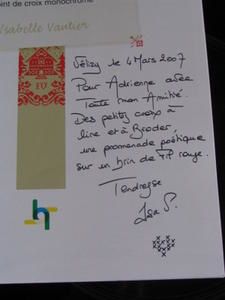 oint de croix monochrome
Isabelle Vautier
Vélizy le 4 Mars 2007
Pour Adrienne avec
Toute mon Amitié.
Des petites croix à
lire et à Broder,
une promenade poétique
sur un brin de fil rouge.
Tendresse
Isa